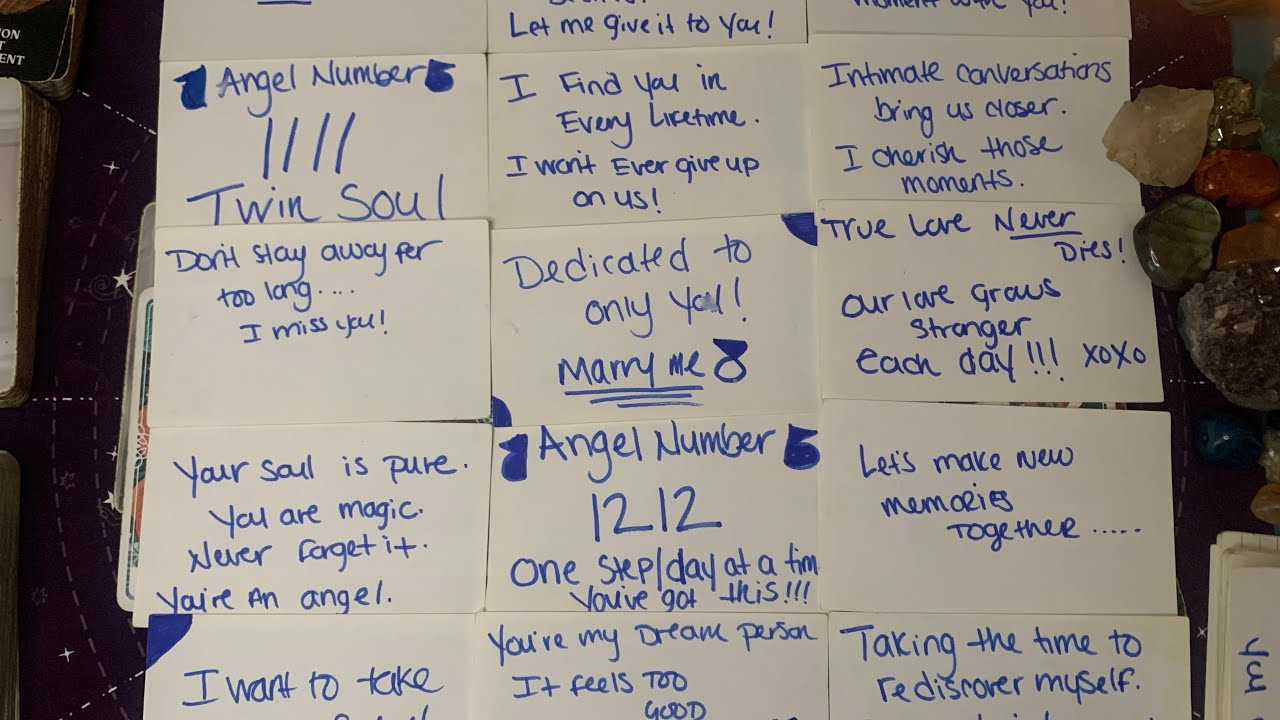 ON
T
ENT
Let me give it to you!
moment with you!
Angel Number
1111
Twin Soul
I Find you in
Every Lifetime.
I won't Ever give up
on us!
Intimate conversations
bring us closer.
I cherish those
moments.
Don't stay away for
too long....
I miss you!
Dedicated to
only you!
Marry me
True Love Never
Dies!
Our love grows
stronger
each day!!! xoxo
Your soul is pure.
You are magic.
Never Forget it.
You're An angel.
Angel Number
1212
One step/day at a tim
You've got this!!!
Let's make New
memories
Together .....
I want to take
You're my Dream person
It feels Too
GOOD
Taking the time to
rediscover myself.